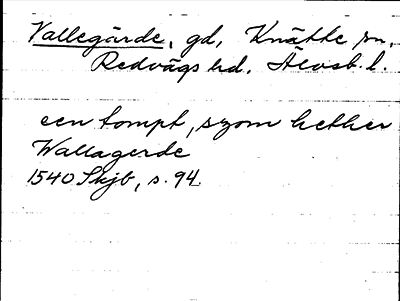 Vallegärde, gd, Knätte sn,
Redvägs hd. Älvsb. l.
een tompt, szom hether
Wallagerde
1540 Skjb, s. 94.